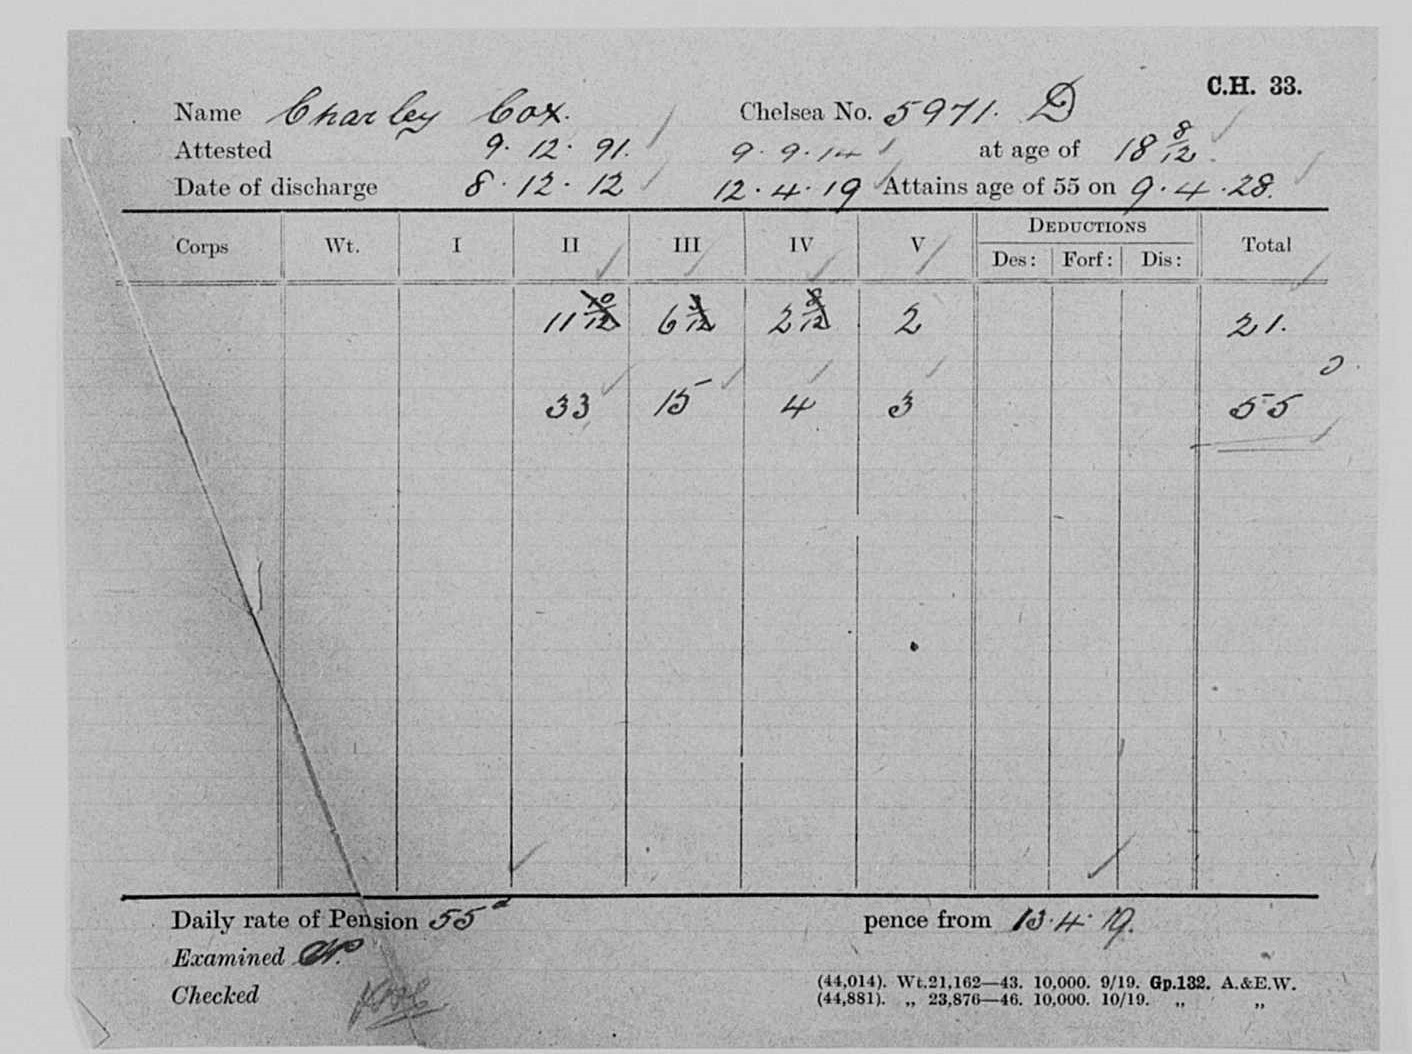 C.H. 33.
Name Charley Cox. Chelsea No. 5971. D
Attested 9. 12. 91. 9. 9. 14 at age of 18 8/12.
Date of discharge 8. 12. 12 12. 4. 19 Attains age of 55 on 9. 4. 28.
DEDUCTIONS
Corps Wt. I II III IV V Des: Forf: Dis: Total
11 10/12 6 3/12 2 8/12 2 21.
33 15 4 3 55
Daily rate of Pension 55d pence from 13. 4. 19.
Examined
Checked
(44,014). Wt.21,162—43. 10,000. 9/19. Gp.132. A.&E.W.
(44,881). „ 23,876—46. 10,000. 10/19. „ „